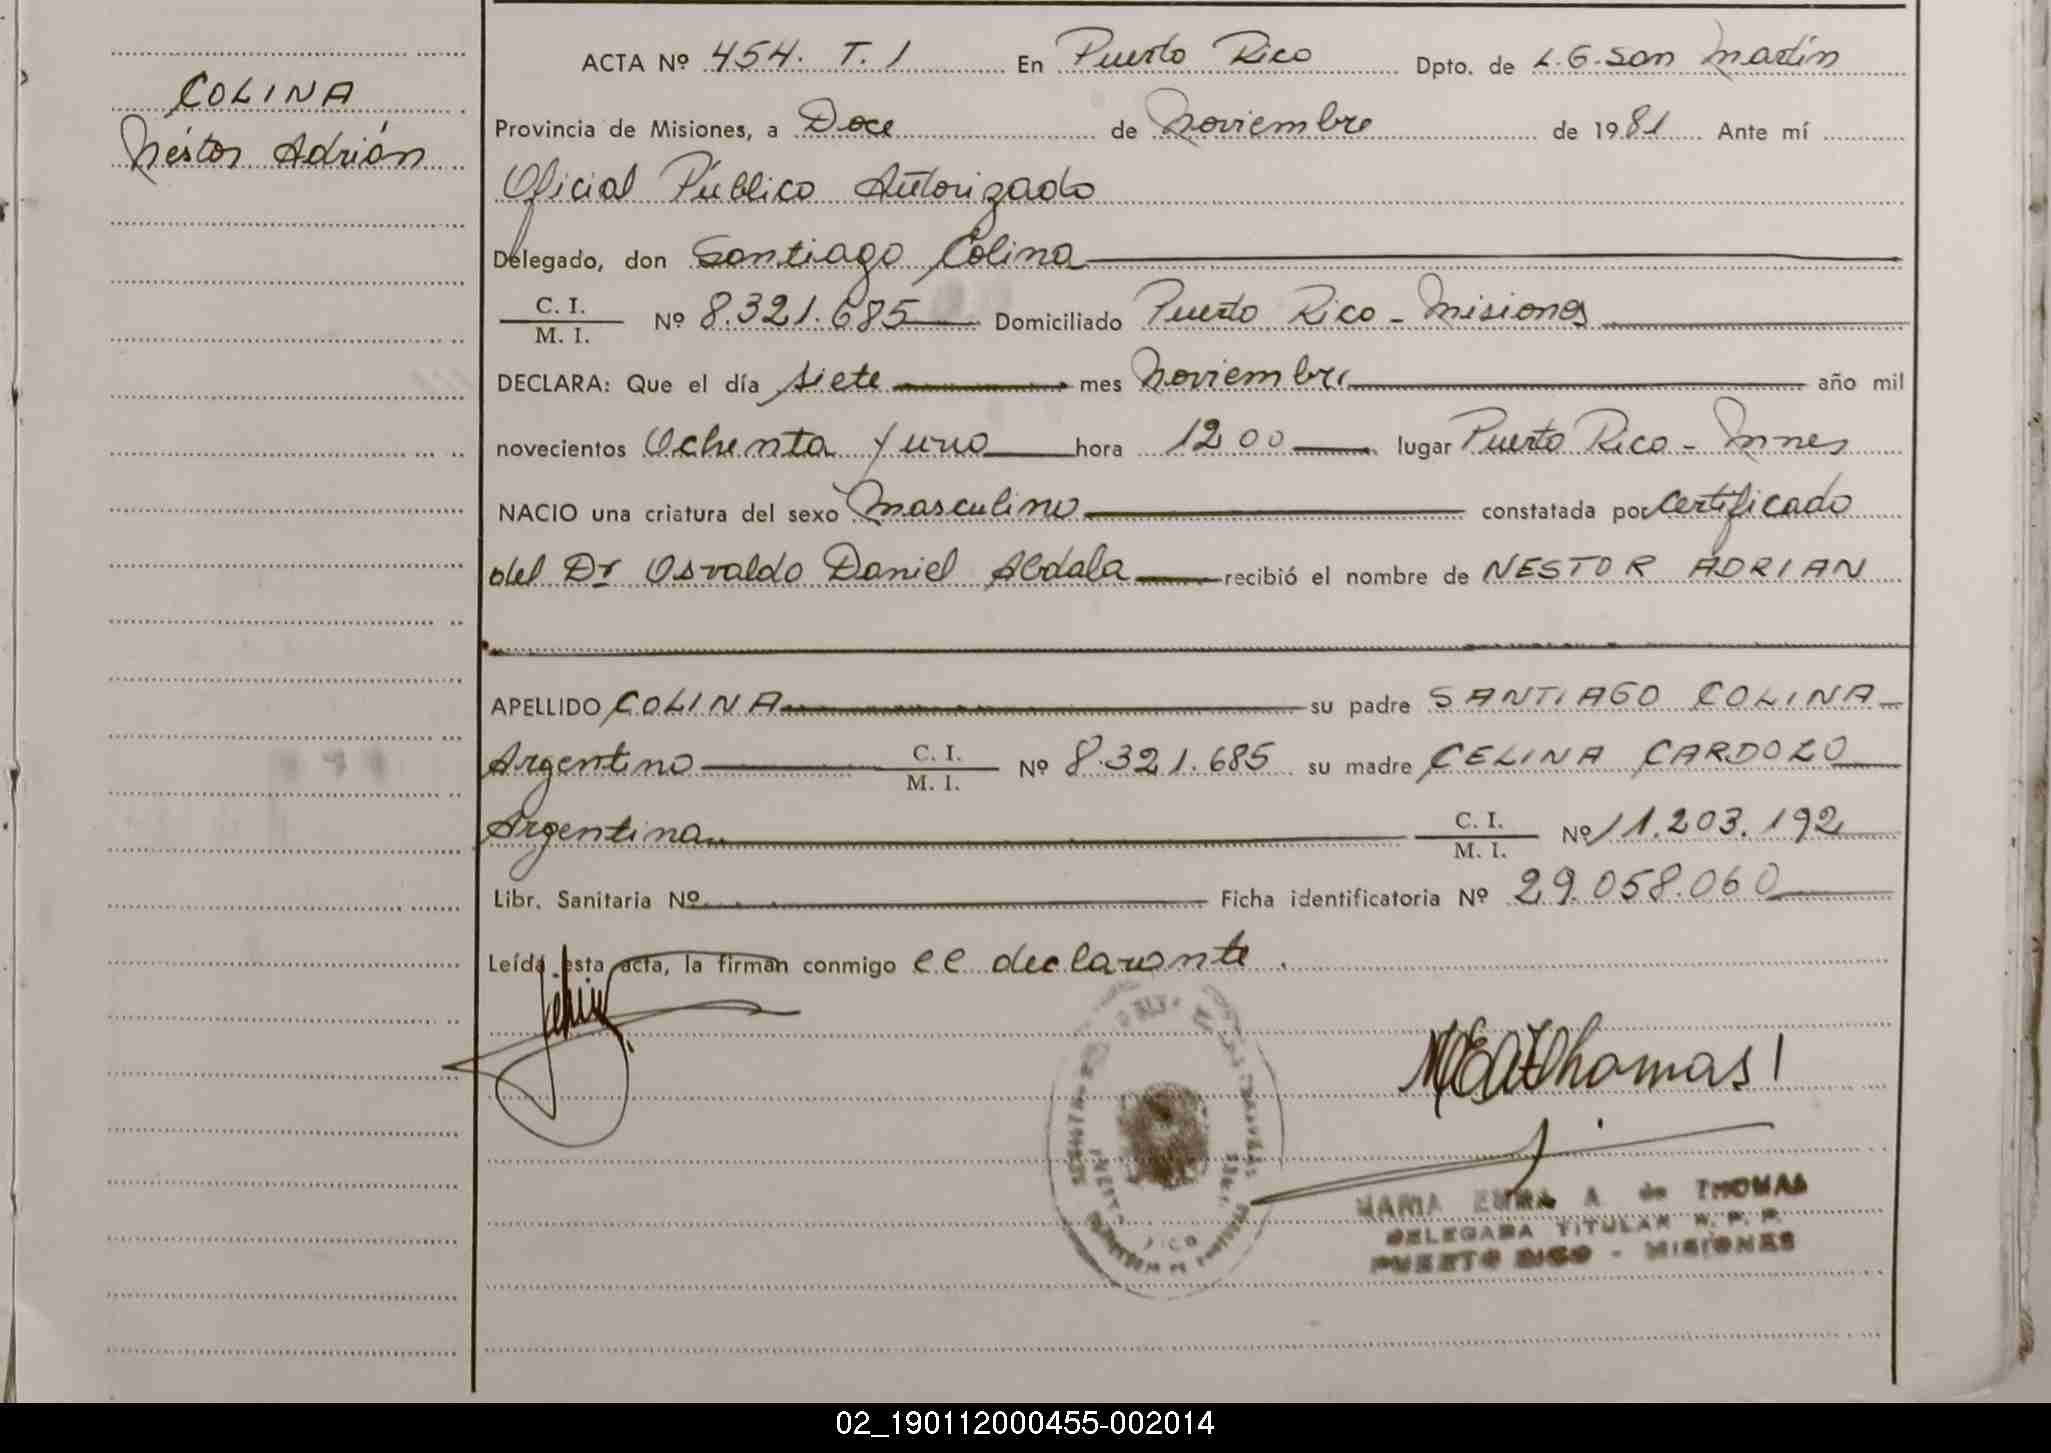 COLINA
Néstor Adrián
ACTA Nº 454. T. 1 En Puerto Rico Dpto. de L.G. San Martín
Provincia de Misiones, a Doce de Noviembre de 1981 Ante mí
Oficial Público Autorizado
Delegado, don Santiago Colina
C. I.
M. I.
Nº 8.321.685 Domiciliado Puerto Rico - Misiones
DECLARA: Que el día siete mes Noviembre año mil
novecientos Ochenta y uno hora 12 00 lugar Puerto Rico - Mnes
NACIO una criatura del sexo Masculino constatada por certificado
del Dr Osvaldo Daniel Abdala recibió el nombre de NESTOR ADRIAN
APELLIDO COLINA su padre SANTIAGO COLINA
Argentino C. I. M. I. Nº 8.321.685 su madre CELINA CARDOZO
Argentina C. I. M. I. Nº 11.203.192
Libr. Sanitaria Nº Ficha identificatoria Nº 29.058.060
Leída esta acta, la firman conmigo el declarante.
Thomas
MARIA EMMA A. de THOMAS
DELEGADA TITULAR R. P. P.
PUERTO RICO - MISIONES
02_190112000455-002014